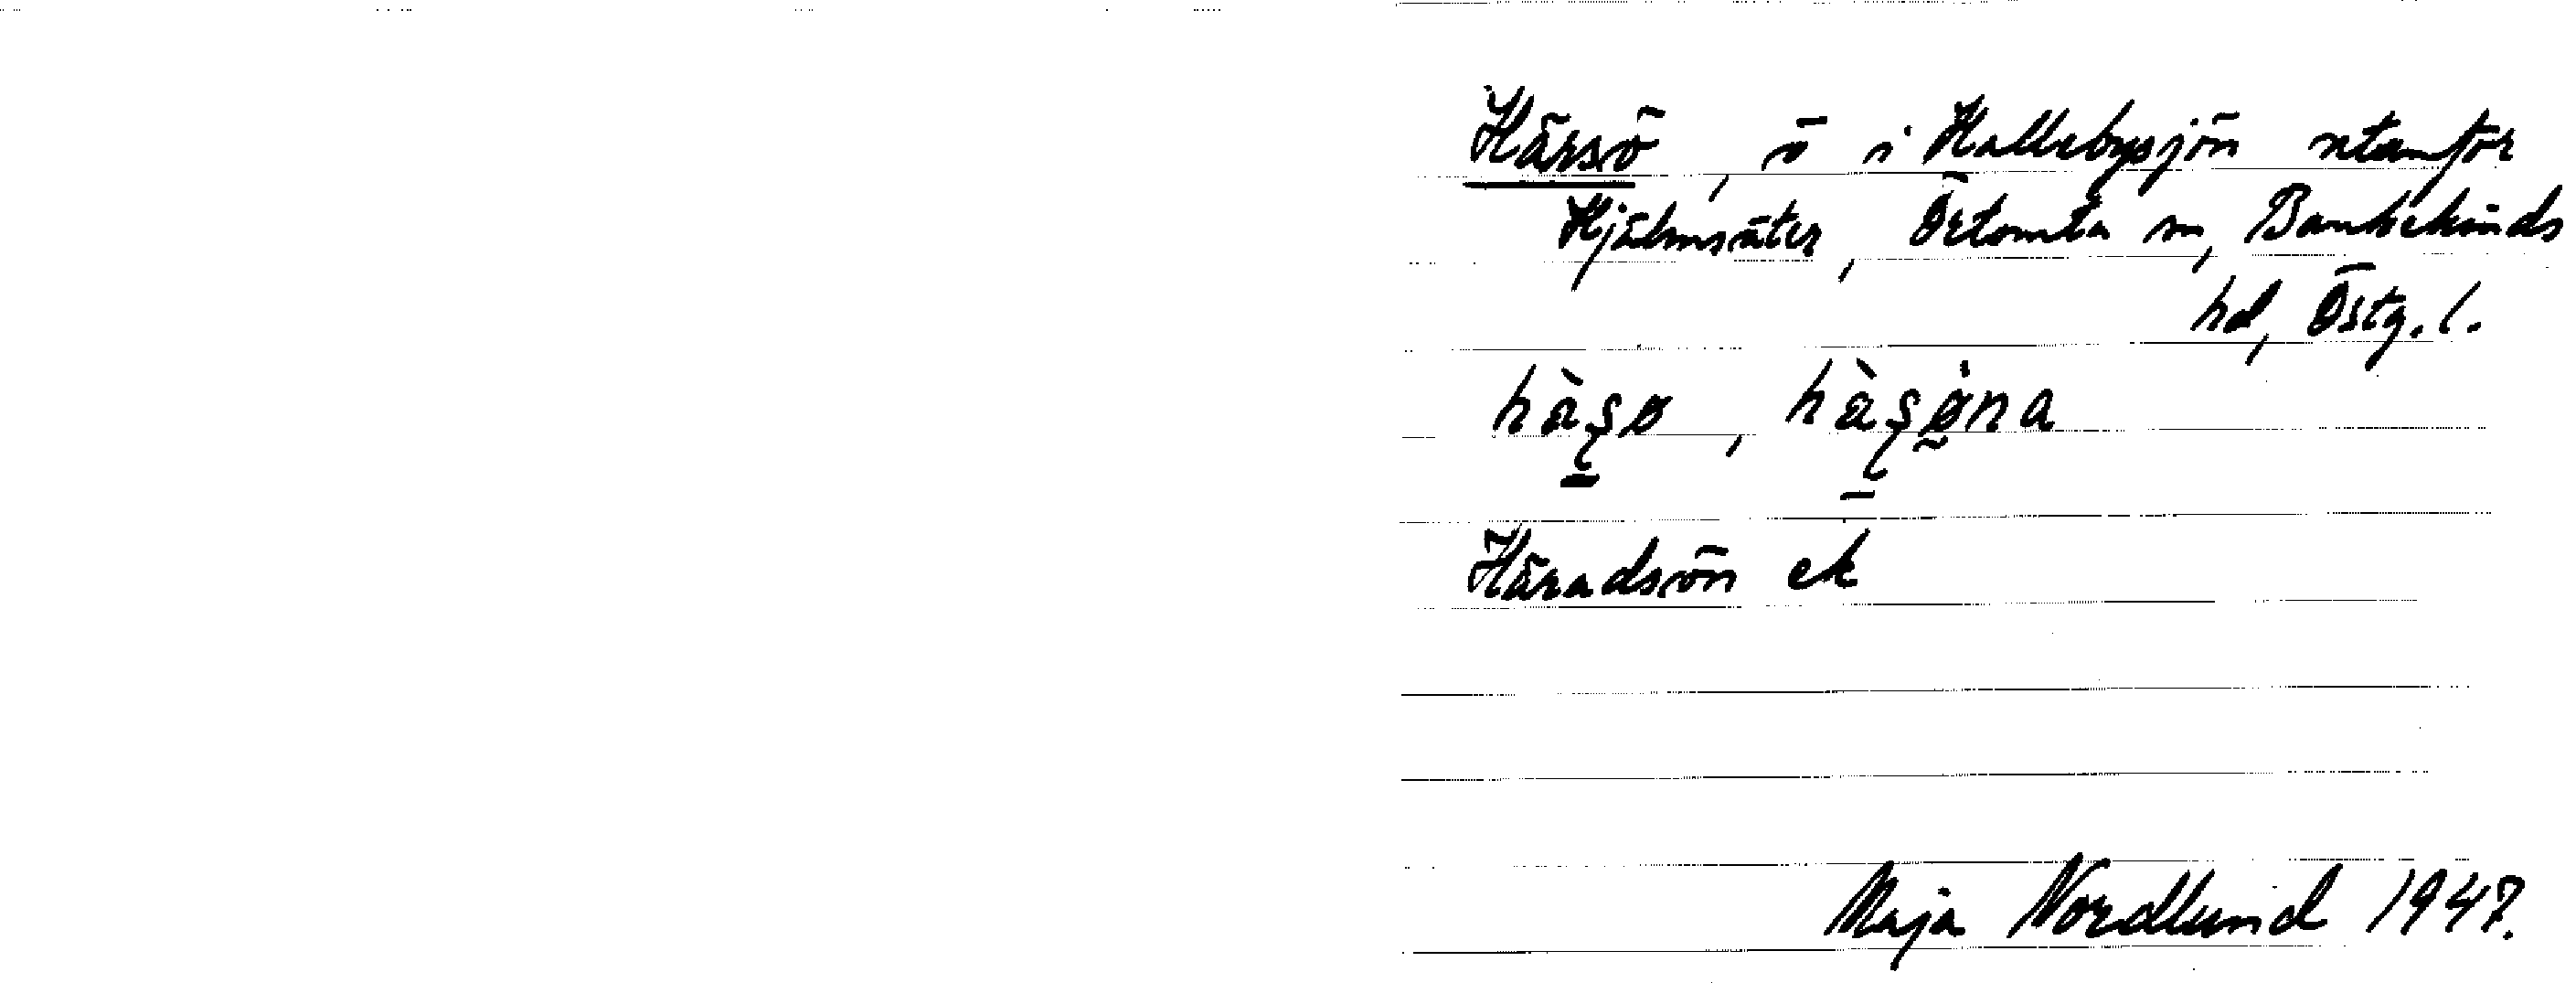 Härsö, ö i Hallebysjön utanför
Hjälmsäter, Örtomta sn, Bankekinds
hd, Östg. l.
hàʂø, hàʂø̀na
Häradsön ek
Maja Nordlund 1947.